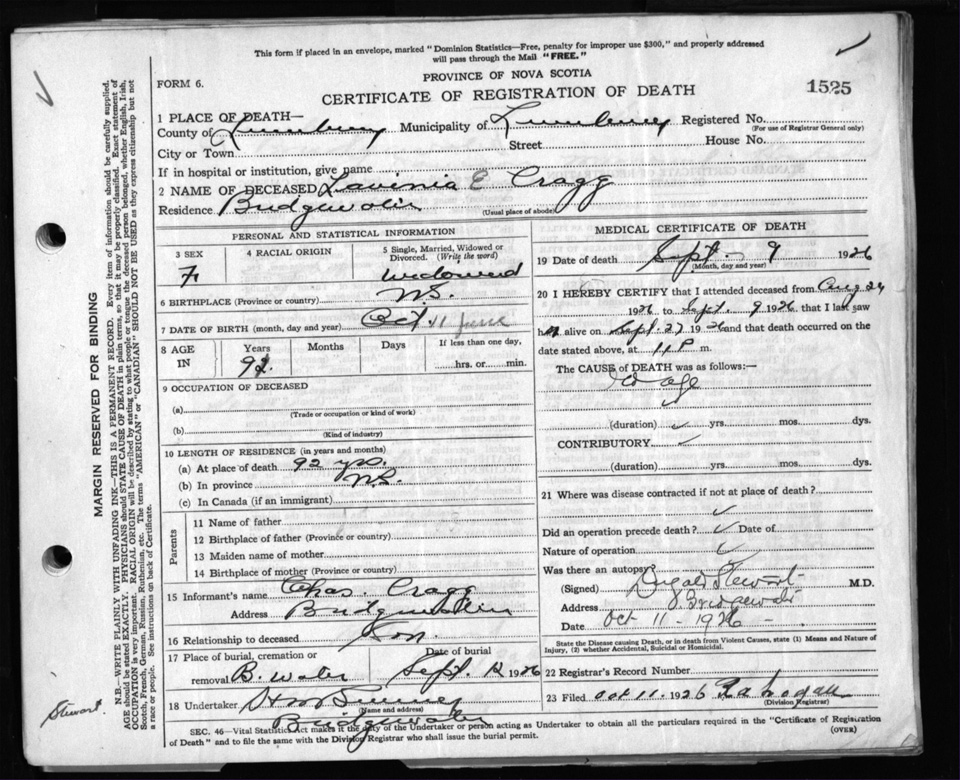 This form if placed in an envelope, marked "Dominion Statistics—Free, penalty for improper use $300," and properly addressed
will pass through the Mail "FREE."
PROVINCE OF NOVA SCOTIA
FORM 6.
CERTIFICATE OF REGISTRATION OF DEATH
1525
1 PLACE OF DEATH—
County of Lunenburg Municipality of Lunenburg Registered No.
(For use of Registrar General only)
City or Town Street House No.
If in hospital or institution, give name
2 NAME OF DECEASED Lavinia E Cragg
Residence Bridgewater
(Usual place of abode)
PERSONAL AND STATISTICAL INFORMATION
3 SEX
F
4 RACIAL ORIGIN
5 Single, Married, Widowed or
Divorced. (Write the word)
widowed
6 BIRTHPLACE (Province or country) N.S.
7 DATE OF BIRTH (month, day and year) Oct. 11 June
8 AGE IN
Years Months Days If less than one day,
92. hrs. or min.
9 OCCUPATION OF DECEASED
(a)
(Trade or occupation or kind of work)
(b)
(Kind of industry)
10 LENGTH OF RESIDENCE (in years and months)
(a) At place of death 92 yrs
(b) In province N.S.
(c) In Canada (if an immigrant)
Parents
11 Name of father
12 Birthplace of father (Province or country)
13 Maiden name of mother
14 Birthplace of mother (Province or country)
15 Informant's name Chas. Cragg
Address Bridgewater
16 Relationship to deceased Son.
17 Place of burial, cremation or Date of burial
removal B. water Sept. 12 1926
18 Undertaker
(Name and address)
Bridgewater
MEDICAL CERTIFICATE OF DEATH
19 Date of death Sept - 9 1926
(Month, day and year)
20 I HEREBY CERTIFY that I attended deceased from Aug 24
1926 to Sept. 9 1926 that I last saw
h alive on Sept. 27 1926 and that death occurred on
date stated above, at 11 P m.
The CAUSE of DEATH was as follows:—
Old age
(duration) ✓ yrs. mos. dys.
CONTRIBUTORY ✓
(duration) yrs. mos. dys.
21 Where was disease contracted if not at place of death?
✓
Did an operation precede death? ✓ Date of
Nature of operation ✓
Was there an autopsy
(Signed) Dugald Stewart M.D.
Address Bridgewater
Date Oct 11 - 1926 -
State the Disease causing Death, or in death from Violent Causes, state (1) Means and Nature of
Injury, (2) whether Accidental, Suicidal or Homicidal.
22 Registrar's Record Number
23 Filed Oct 11. 1926
(Division Registrar)
SEC. 46—Vital Statistics Act makes it the duty of the Undertaker or person acting as Undertaker to obtain all the particulars required in the "Certificate of Registration
of Death" and to file the same with the Division Registrar who shall issue the burial permit.
(OVER)
MARGIN RESERVED FOR BINDING
N.B.—WRITE PLAINLY WITH UNFADING INK—THIS IS A PERMANENT RECORD. Every item of information should be carefully supplied.
AGE should be stated EXACTLY. PHYSICIANS should STATE CAUSE OF DEATH in plain terms, so that it may be properly classified. Exact statement of
OCCUPATION is very important. RACIAL ORIGIN will be described by stating to what people or tongue the deceased person belonged, whether English, Irish,
Scotch, French, German, Russian, Ruthenian, etc. The terms "AMERICAN" or "CANADIAN" SHOULD NOT BE USED as they express citizenship but not
a race or people. See instructions on back of Certificate.
Stewart